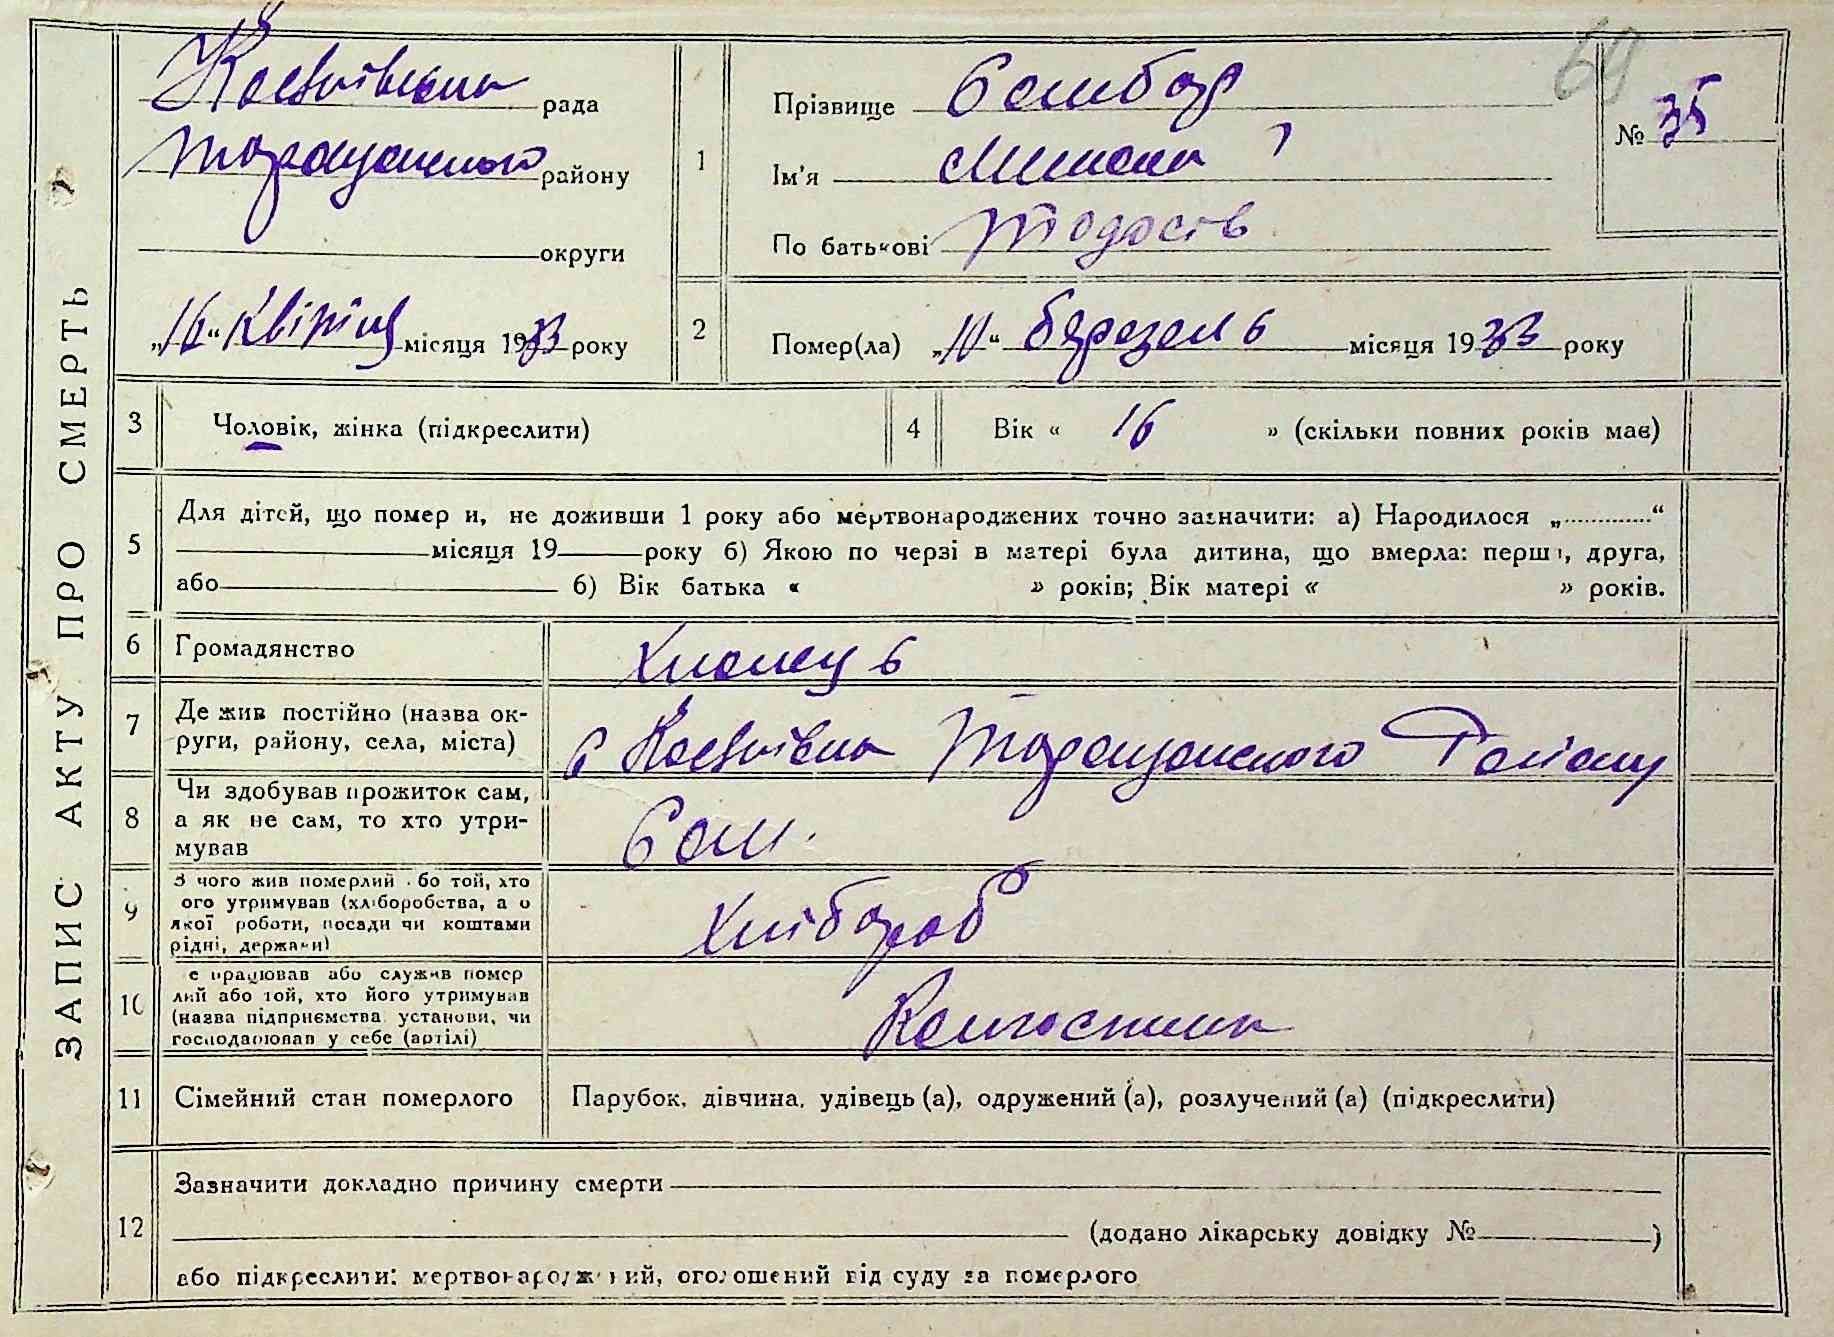 ЗАПИС АКТУ ПРО СМЕРТЬ
рада
Таращанського району
округи
„16“ Квітня місяця 1933 року
69
№ 35
1
Прізвище Самбор
Ім'я Микола
По батькові Тодосів
2
Помер(ла) „10“ березень місяця 1933 року
3
Чоловік, жінка (підкреслити)
4
Вік « 16 » (скільки повних років має)
5
Для дітей, що помер и, не доживши 1 року або мертвонароджених точно зазначити: а) Народилося „..............“
місяця 19 року б) Якою по черзі в матері була дитина, що вмерла: перш , друга,
або б) Вік батька « » років; Вік матері « » років.
6
Громадянство
хлопець
7
Де жив постійно (назва ок-
руги, району, села, міста)
с Таращанського Району
8
Чи здобував прожиток сам,
а як не сам, то хто утри-
мував
Сам.
9
З чого жив померлий бо той, хто
ого утримував (хліборобства, а о
якої роботи, посади чи коштами
рідні, держави)
хлібороб
10
е працював або служив помер
лий або той, хто його утримував
(назва підприємства установи, чи
господарював у себе (артілі)
Колгоспник
11
Сімейний стан померлого
Парубок, дівчина, удівець (а), одружений (а), розлучений (а) (підкреслити)
12
Зазначити докладно причину смерти
(додано лікарську довідку № )
або підкреслити: мертвонароджений, оголошений від суду за померлого